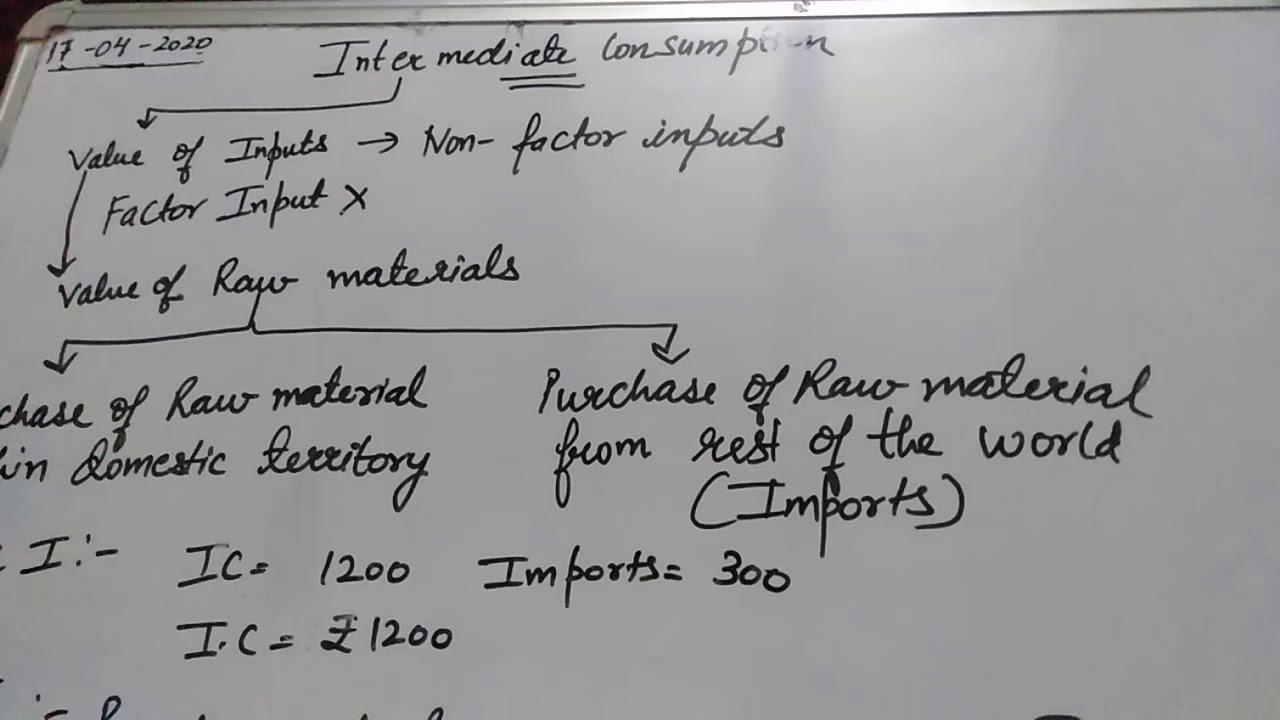 17-04-2020
Intermediate Consumption
Value of Inputs → Non-factor inputs
Factor Input X
Value of Raw materials
chase of Raw material
in domestic territory
Purchase of Raw material
from rest of the world
(Imports)
I:- IC= 1200 Imports= 300
I.C = ₹1200